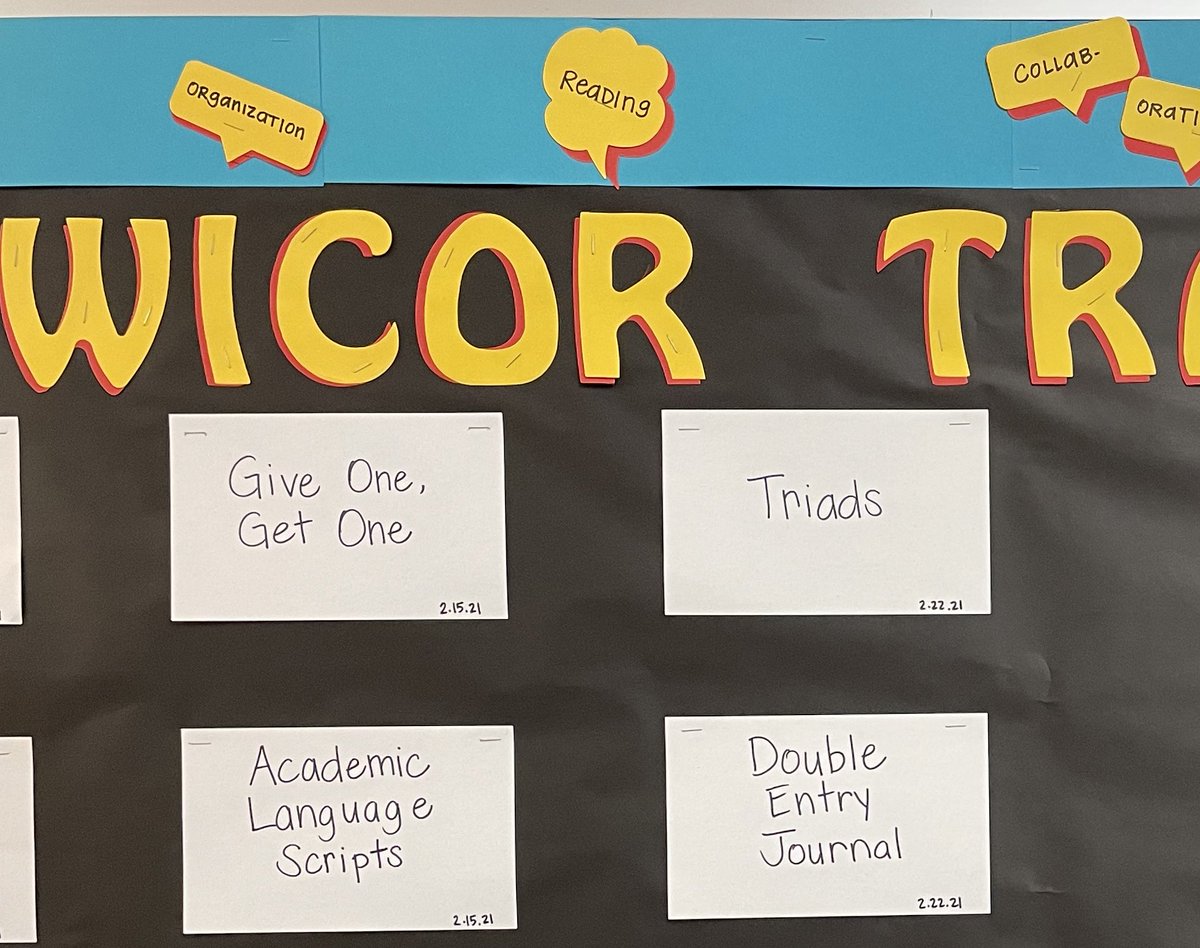 Organization
Reading
Collab-
orati
WICOR TR
Give One,
Get One
2.15.21
Triads
2.22.21
Academic
Language
Scripts
2.15.21
Double
Entry
Journal
2.22.21